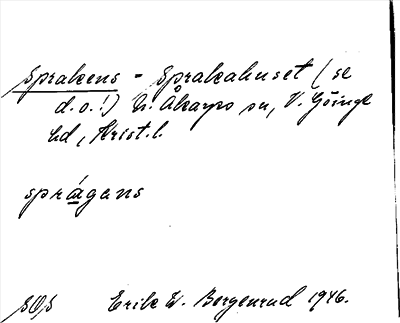 Sprakens - Sprakahuset (se
d.o.!) N. Åkarps sn, V. Göinge
hd, Krist.l.
sprágans
SOS Erik W. Bergenrud 1946.